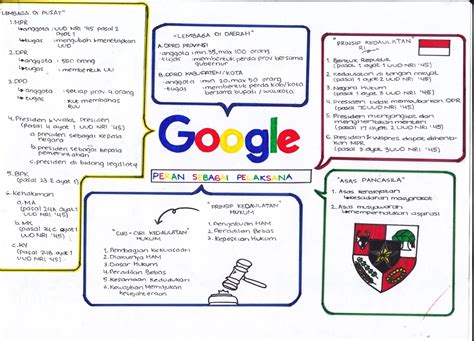 LEMBAGA DI PUSAT"
1. MPR
anggota : UUD NRI '45 pasal 2
ayat 1
tugas : mengubah & menetapkan
UUD
2. DPR
anggota : 560 orang
tugas : membentuk UU
3. DPD
anggota : setiap prov 4 orang
tugas : ikut membahas
RUU
4. Presiden & Wakil Presiden
(pasal 4 ayat 1 UUD NRI '45)
a. presiden sebagai kepala
negara
b. presiden sebagai kepala
pemerintahan
c. presiden di bidang legislatif
5. BPK
(pasal 23 E ayat 1)
6. Kehakiman
a. MA
(pasal 24A ayat 1
UUD NRI '45)
b. MK
(pasal 24C ayat 1
UUD NRI '45)
c. KY
(pasal 24B ayat 1
UUD NRI '45)
"LEMBAGA DI DAERAH"
A. DPRD PROVINSI
anggota : min 35, max 100 orang
tugas : membentuk perda prov bersama
gubernur
B. DPRD KABUPATEN/KOTA
anggota : min 20, max 50 orang
tugas : membentuk perda kab/kota
bersama bupati / walikota
"PRINSIP KEDAULATAN
RI"
1. Bentuk Republik
(pasal 1 ayat 1 UUD NRI '45)
2. Kedaulatan di tangan rakyat
(pasal 1 ayat 2 UUD NRI '45)
3. Negara Hukum
(pasal 1 ayat 3 UUD NRI '45)
4. Presiden tidak membubarkan DPR
(pasal 7C UUD NRI '45)
5. Presiden mengangkat dan
menghentikan menteri
(pasal 17 ayat 2 UUD NRI '45)
6. Presiden & Wapres dapat dihentikan
MPR
(pasal 3 ayat 3 UUD NRI '45)
Google
PERAN SEBAGAI PELAKSANA
"CIRI-CIRI KEDAULATAN
HUKUM
1. Pembagian Kekuasaan
2. Diakuinya HAM
3. Dasar Hukum
4. Peradilan Bebas
5. Kesamaan Kedudukan
6. Kewajiban Memajukan
Kesejahteraan
PRINSIP KEDAULATAN
HUKUM
1. Pengakuan HAM
2. Peradilan Bebas
3. Kepastian Hukum
"ASAS PANCASILA"
1. Asas kerakyatan
kesadaran masyarakat
2. Asas musyawarah
memperhatikan aspirasi